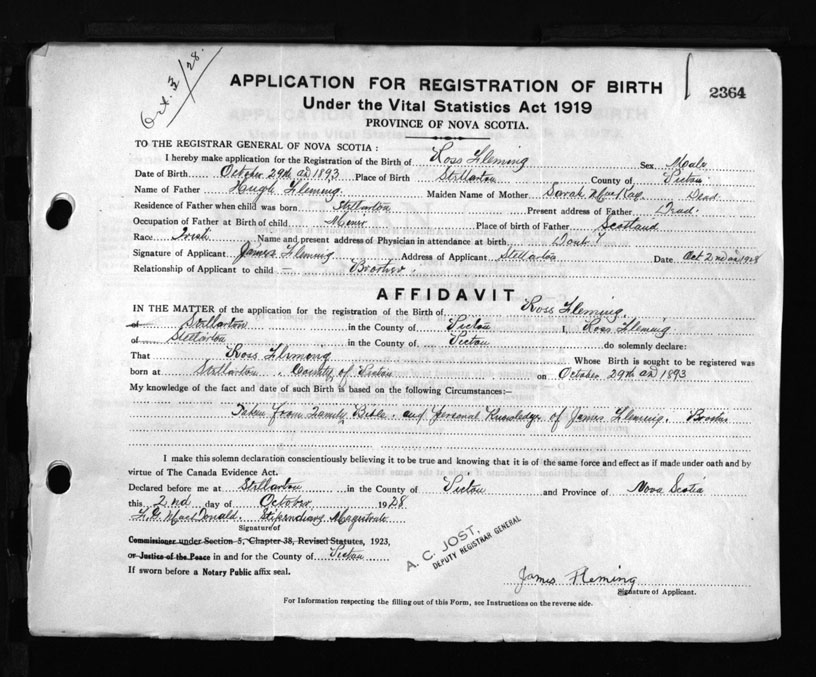 Oct. 3/28.
APPLICATION FOR REGISTRATION OF BIRTH
2364
Under the Vital Statistics Act 1919
PROVINCE OF NOVA SCOTIA.
TO THE REGISTRAR GENERAL OF NOVA SCOTIA:
I hereby make application for the Registration of the Birth of Ross Fleming Sex Male
Date of Birth October 29th AD 1893 Place of Birth Stellarton County of Pictou
Name of Father Hugh Fleming. Maiden Name of Mother Sarah MacKay. Dead
Residence of Father when child was born Stellarton Present address of Father Dead.
Occupation of Father at Birth of child Miner Place of birth of Father Scotland
Race Irish Name and present address of Physician in attendance at birth
Signature of Applicant James Fleming Address of Applicant Stellarton Date Oct 2nd AD 1928
Relationship of Applicant to child — Brother.
AFFIDAVIT
IN THE MATTER of the application for the registration of the Birth of Ross Fleming.
of Stellarton in the County of Pictou I, Ross Fleming
of Stellarton in the County of Pictou do solemnly declare:
That Ross Fleming Whose Birth is sought to be registered was
born at Stellarton. County of Pictou on October 29th AD 1893
My knowledge of the fact and date of such Birth is based on the following Circumstances:—
Taken from Family Bible. and personal Knowledge of James Fleming. Brother
I make this solemn declaration conscientiously believing it to be true and knowing that it is of the same force and effect as if made under oath and by
virtue of The Canada Evidence Act.
Declared before me at Stellarton in the County of Pictou and Province of Nova Scotia
this 2nd day of October 1928
MacDonald. Stipendiary Magistrate
Signature of
Commissioner under Section 5, Chapter 38, Revised Statutes, 1923,
or Justice of the Peace in and for the County of Pictou
If sworn before a Notary Public affix seal.
A. C. JOST,
DEPUTY REGISTRAR GENERAL
James Fleming
Signature of Applicant.
For Information respecting the filling out of this Form, see Instructions on the reverse side.